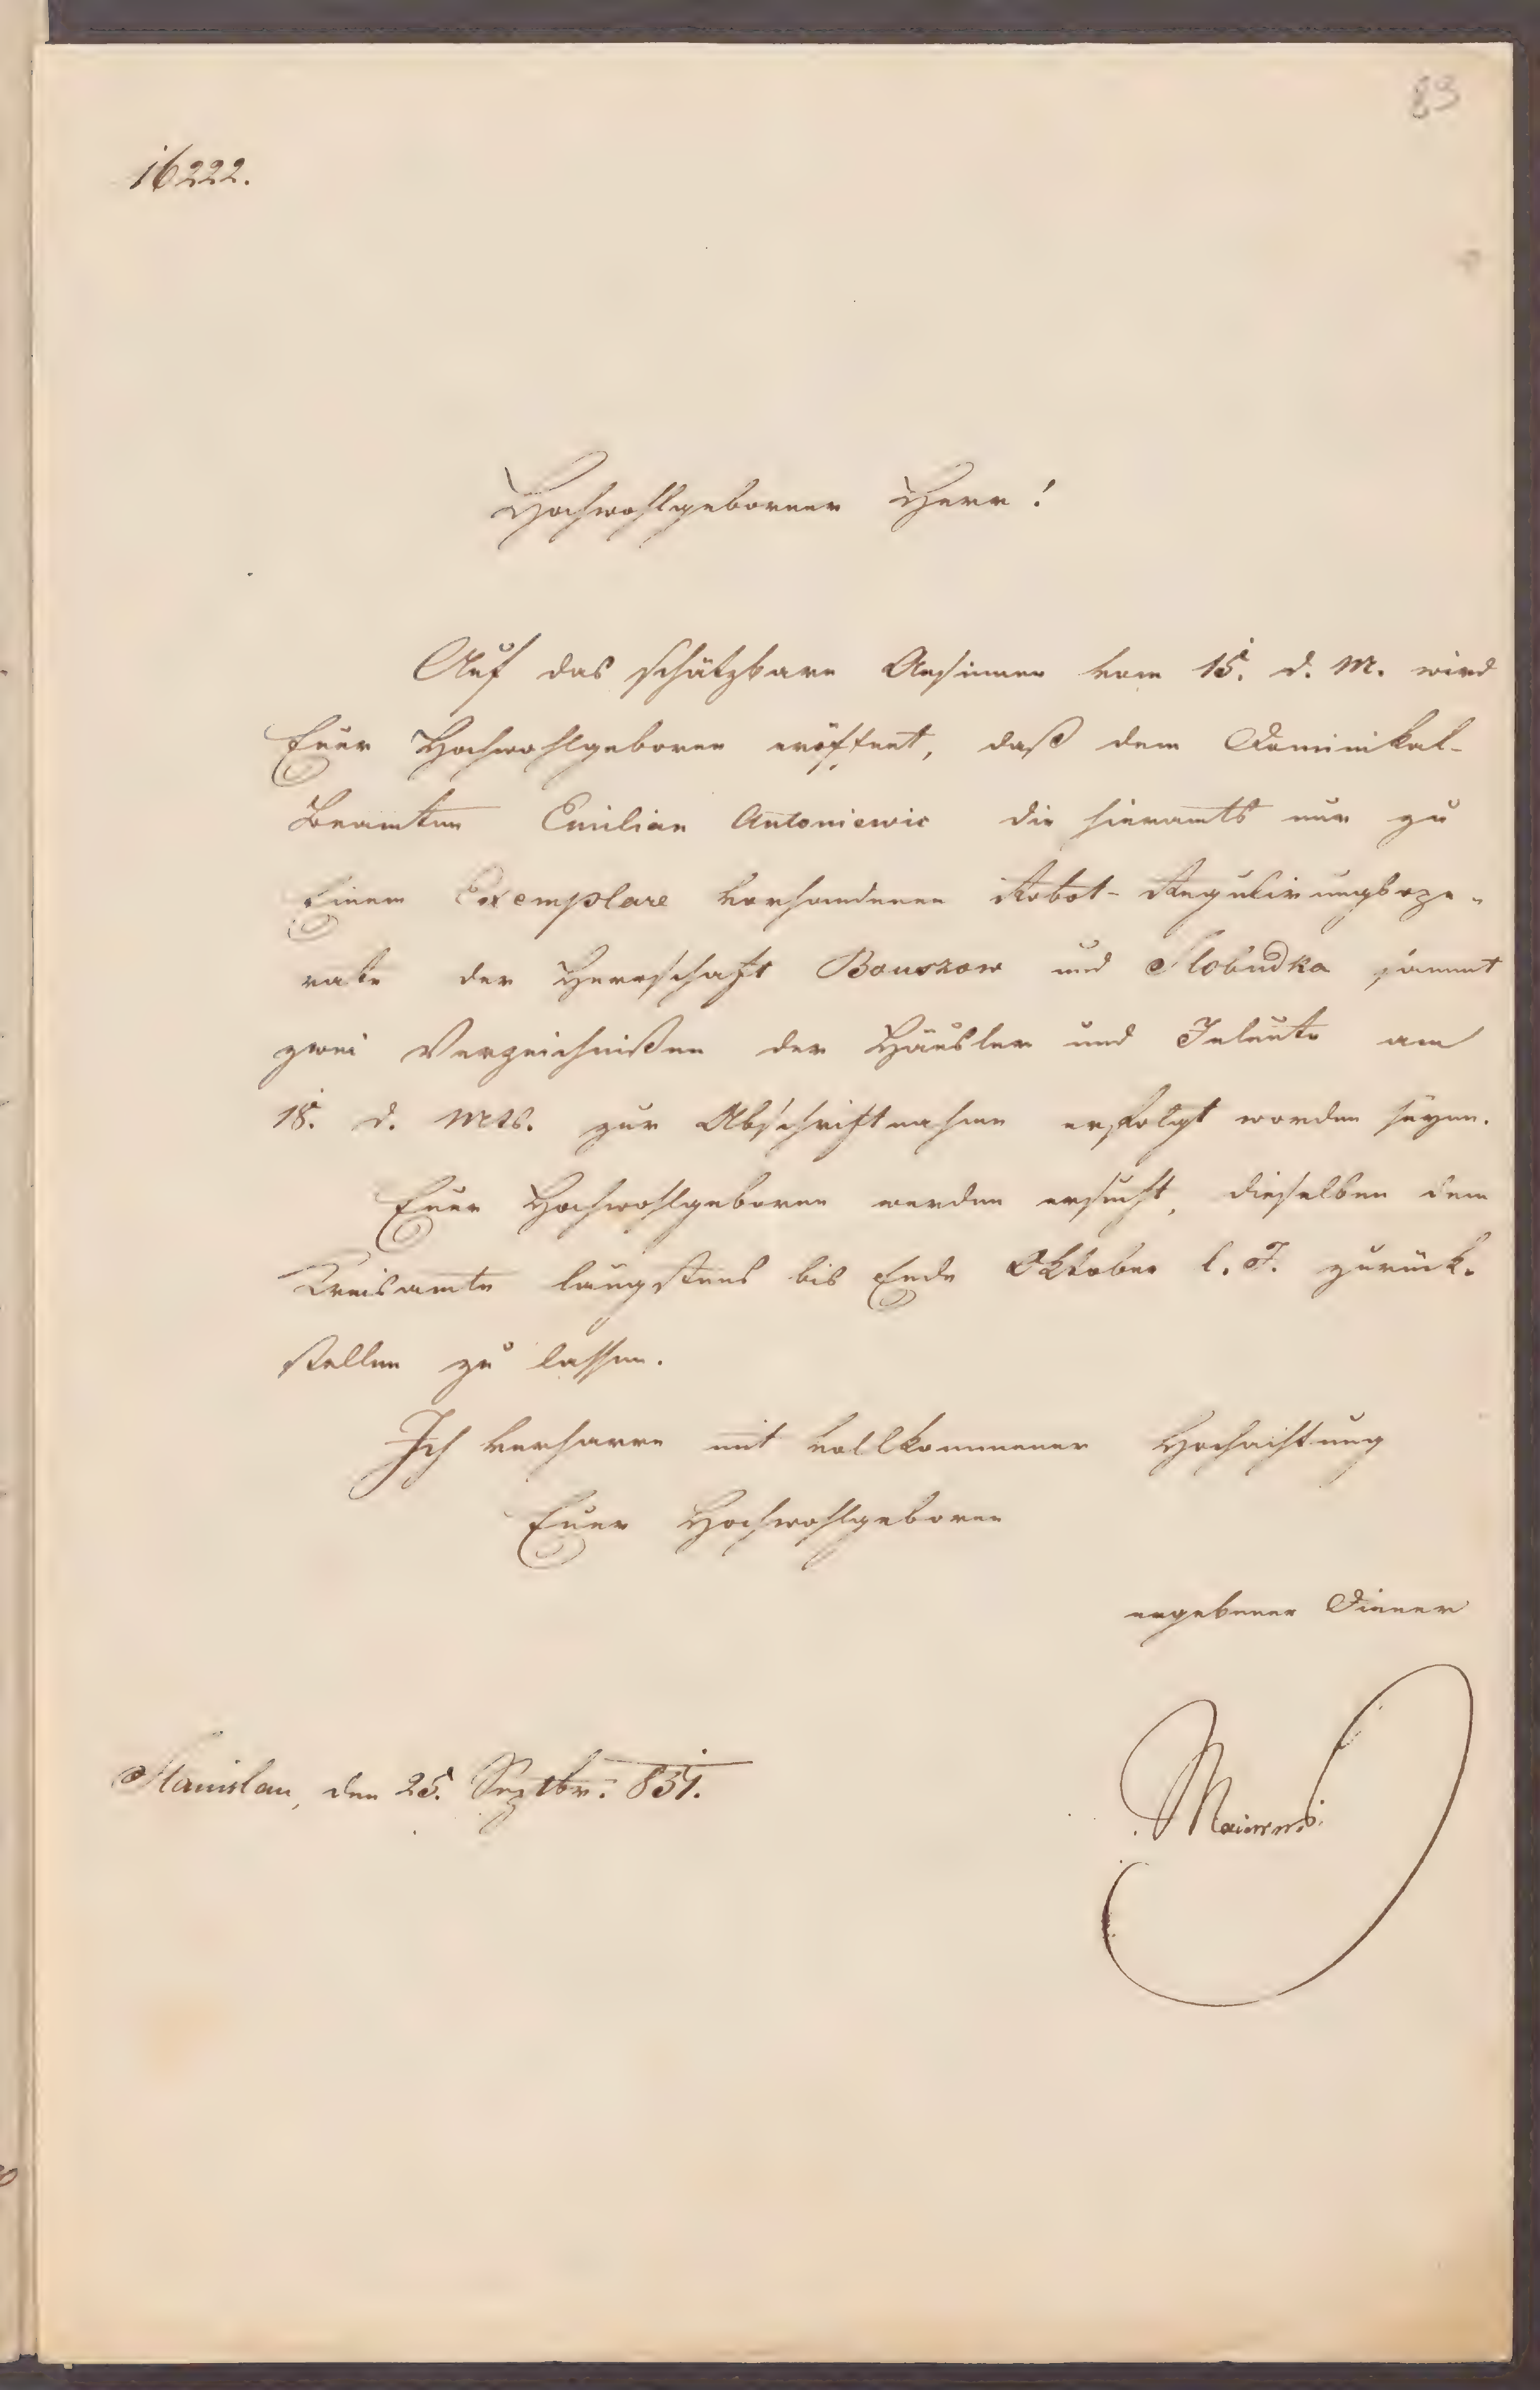 83
16222.
Hochwohlgeborner Herr!
Auf das schätzbare Ansinnen vom 15. d. M. wird
Euer Hochwohlgeboren eröffnet, daß dem Dominikal-
Beamten Emilian Antoniewic die hieramts nur zu
Einem Exemplare vorhandenen Robot-Regulirungsope-
rate der Herrschaft Bouszow und Slobudka sammt
zwei Verzeichnißen der Häusler und Inleute am
18. d. Mts. zur Abschriftnahme erfolgt worden seyen.
Euer Hochwohlgeboren werden ersucht, dieselben dem
Kreisamte längstens bis Ende Oktober l. J. zurück-
stellen zu lassen.
Ich verharre mit vollkommener Hochachtung
Euer Hochwohlgeboren
ergebener Diener
Stanislau, den 25. Septbr. 851.